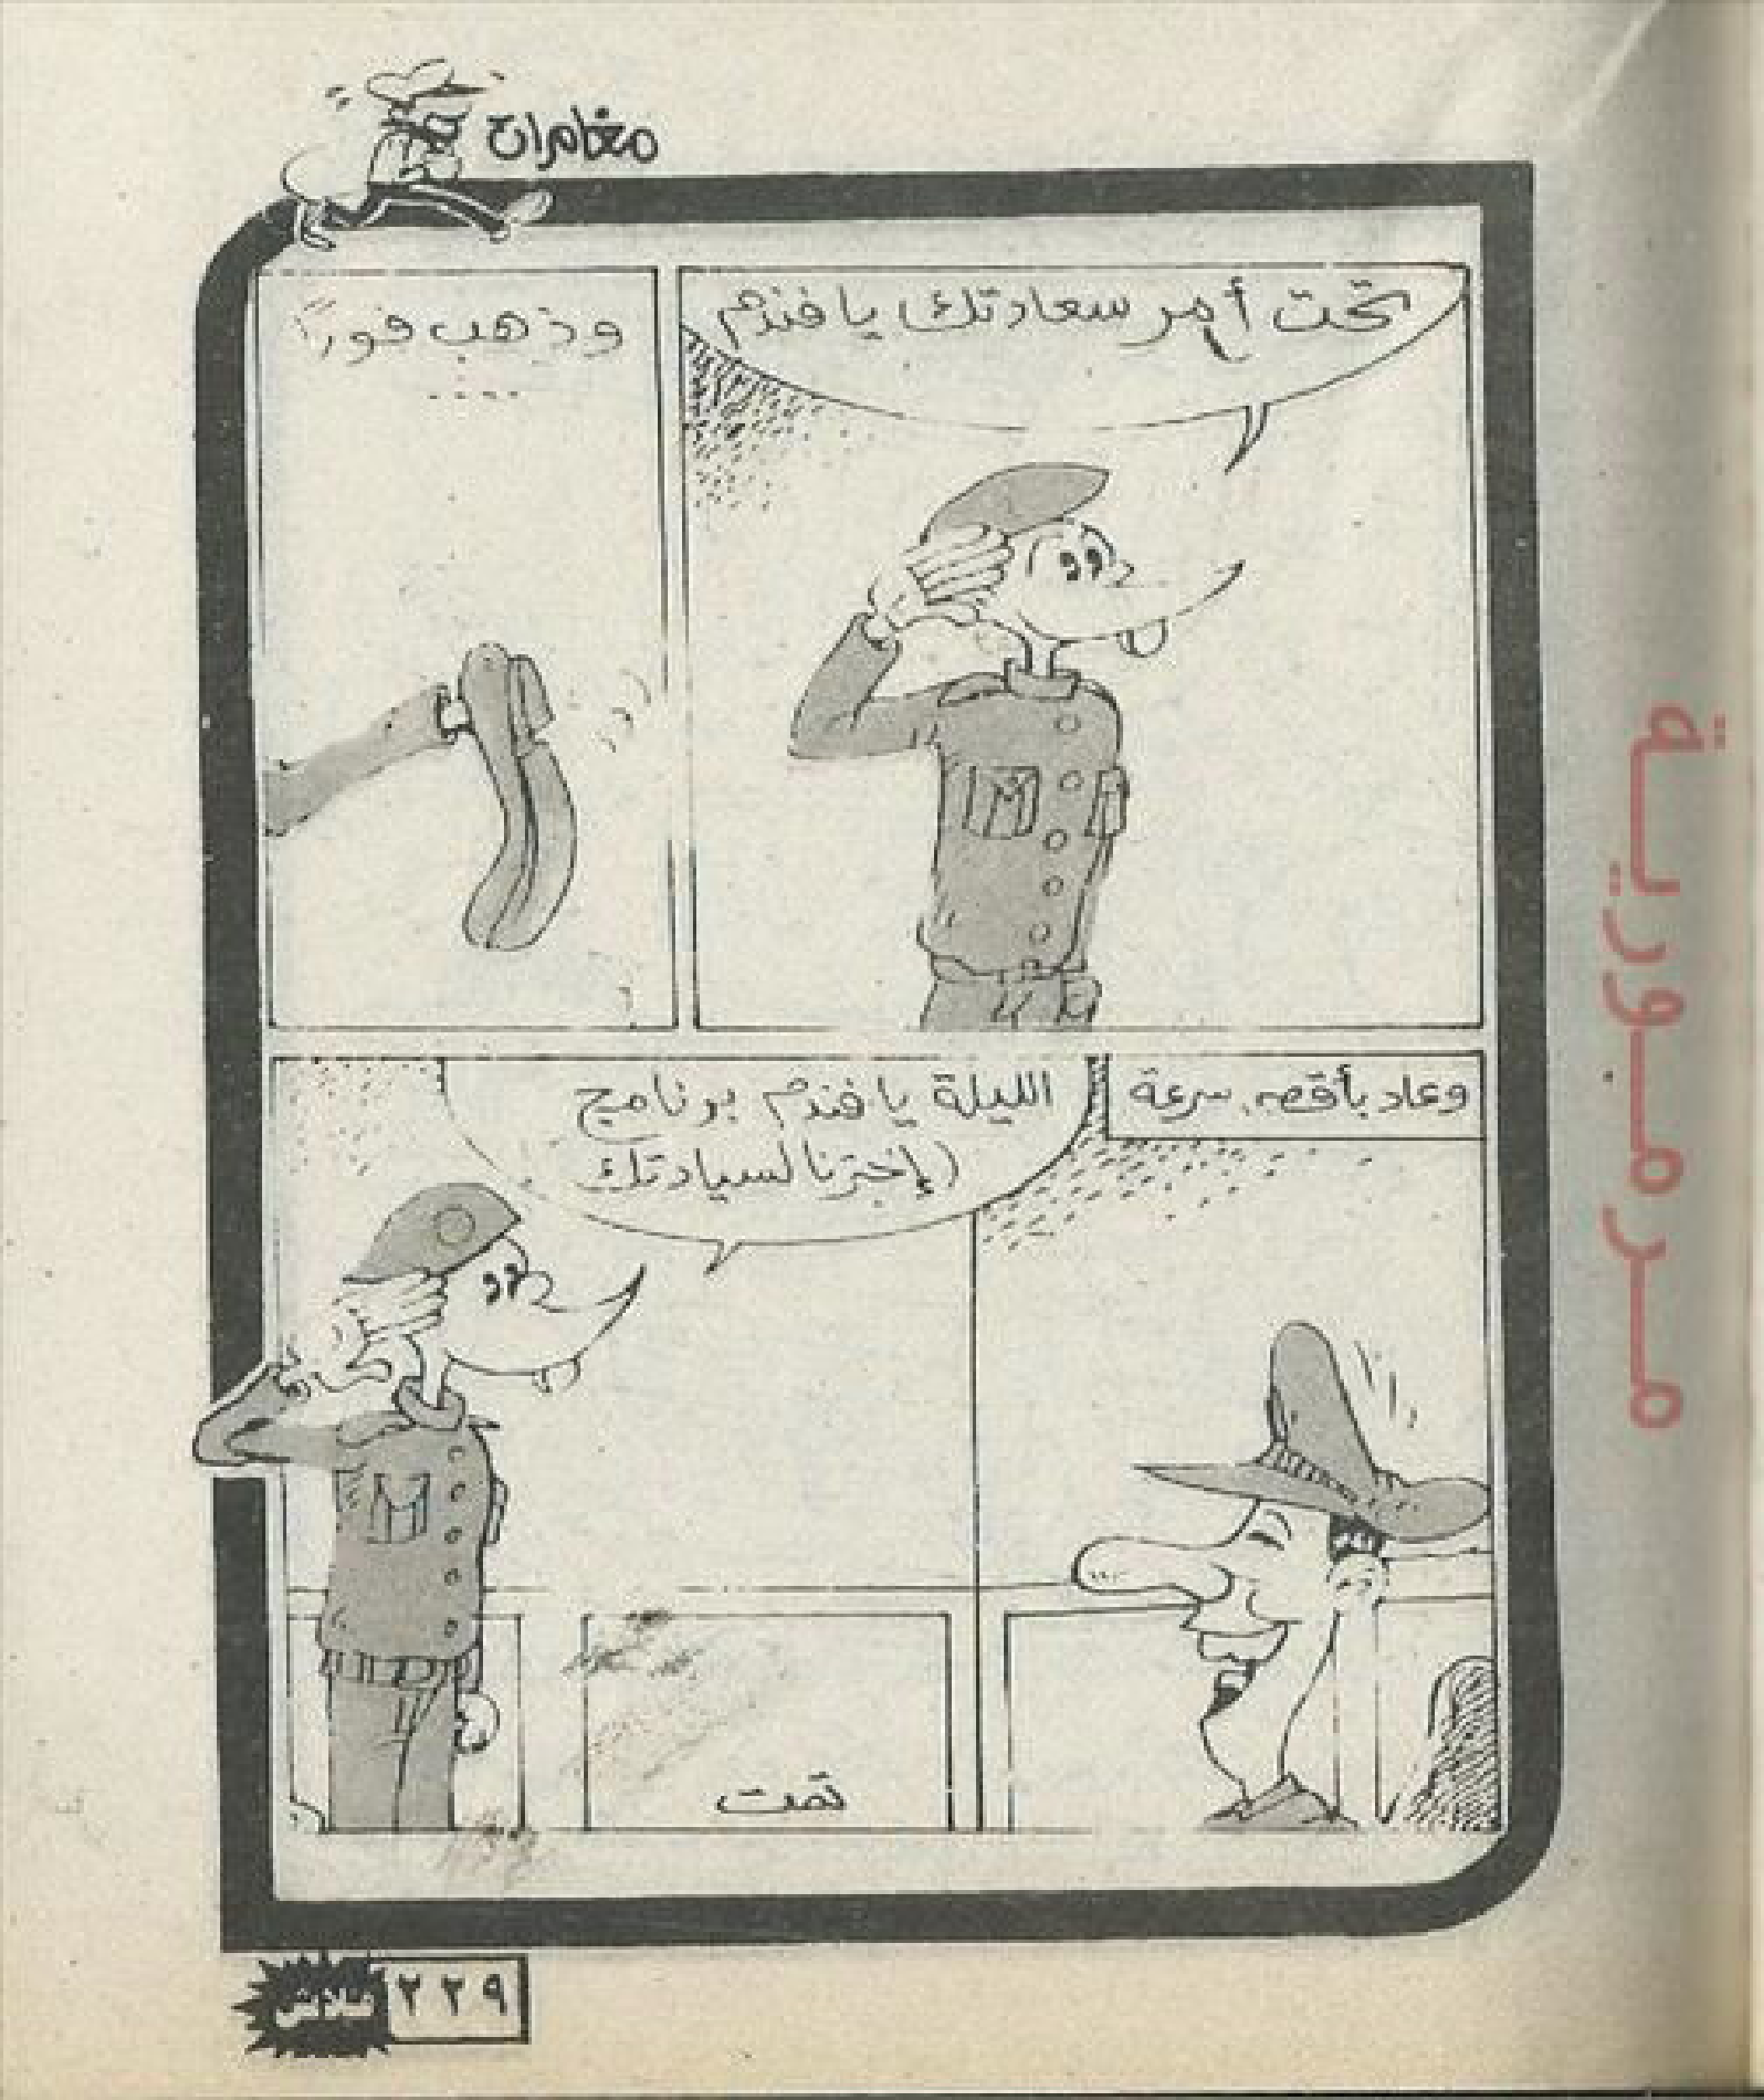 مغامرات
تحت أمر سعادتك يا فندم
وذهب فوراً
....
وعاد بأقصى سرعة
الليلة يا فندم برنامج
(إخترنا لسيادتك
تمت
٢٢٩
مرمورية